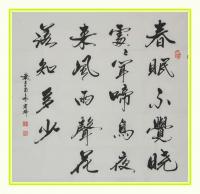 春眠不覺曉
處々聞啼鳥夜
來風雨聲花
落知多少